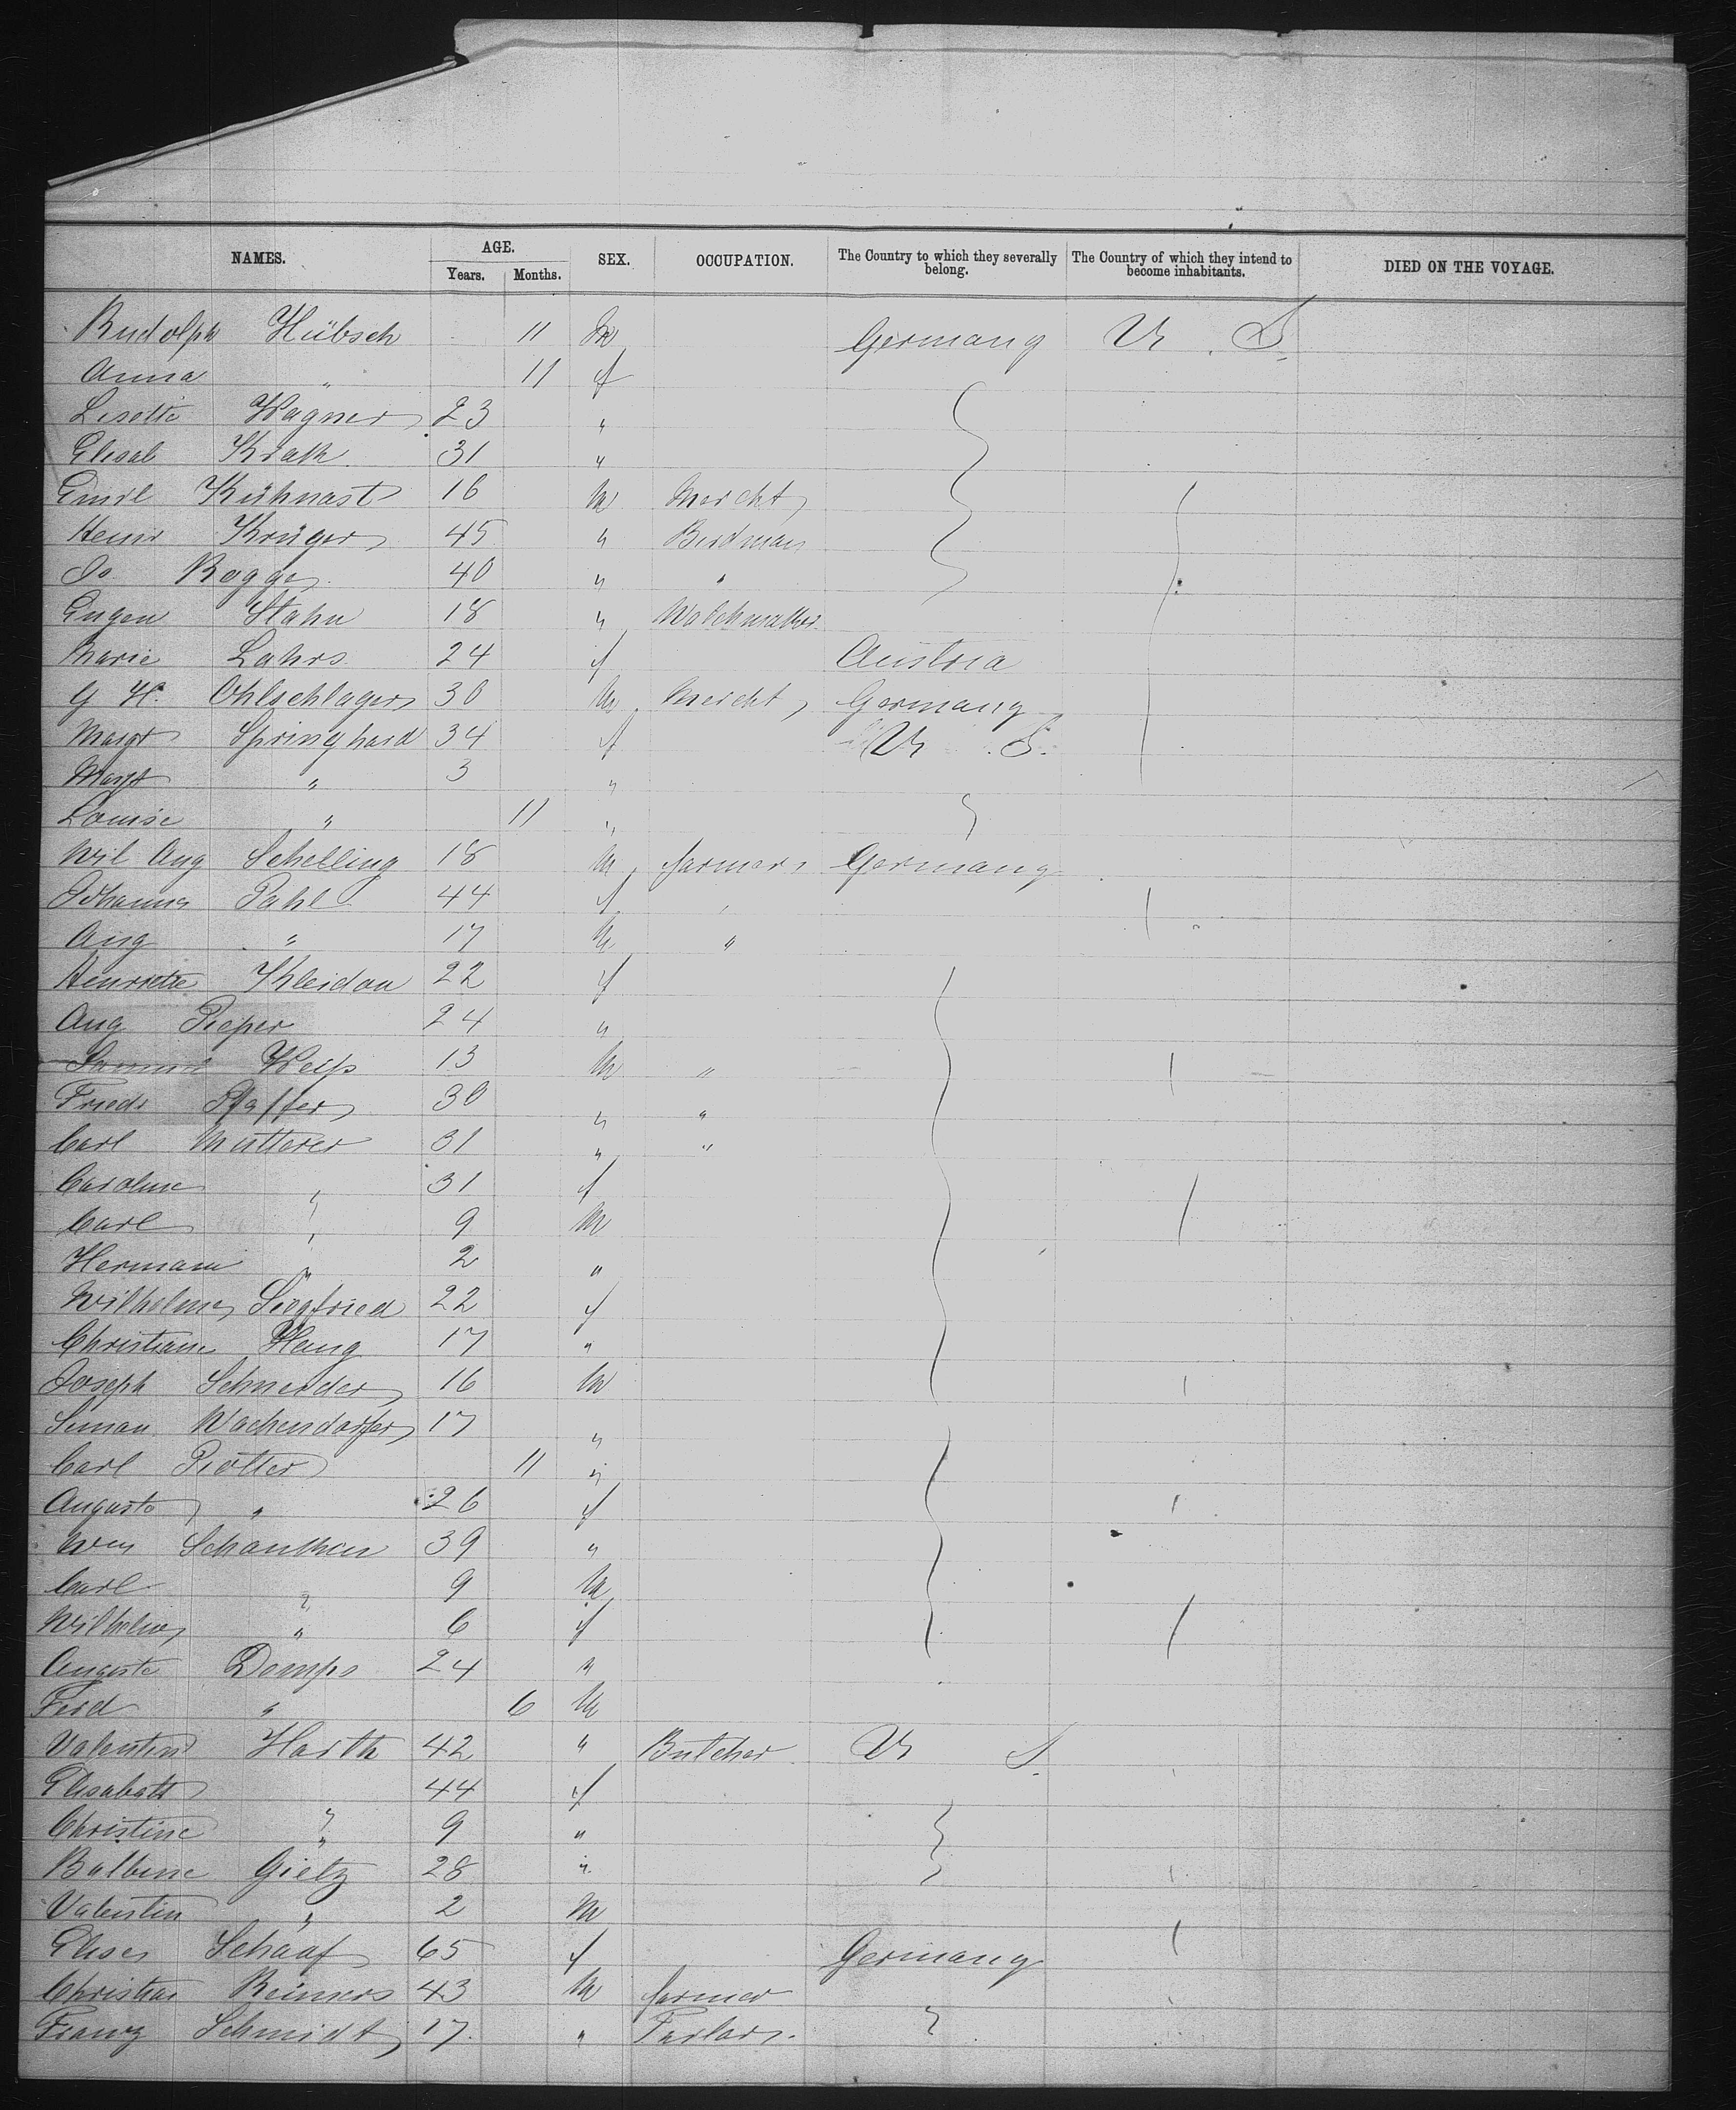 NAMES. AGE. SEX. OCCUPATION. The Country to which they severally belong. The Country of which they intend to become inhabitants. DIED ON THE VOYAGE.
Years. Months.
Rudolph Hübsch 11 M Germany U. S.
Anna " 11 f
Lisette Wagner 23 "
Elisab Krak 31 "
Emil Kühnast 16 M Mercht
Henr Krüger 45 " Birdman
Jo. Rogge 40 " "
Eugen Stahn 18 " Watchmaker
Marie Lahrs 24 f Austria
G H. Ohlschlager 30 M Mercht Germany
Margt Springhard 34 f U. S.
Margt " 3 "
Louise " 11 "
Wil Aug Schelling 18 M farmer Germany
Johanna Pahl 44 f
Aug " 17 M "
Henriette Kleidau 22 f
Aug Pieper 24 "
Weiss 13 M "
Friedr Pfaffer 30 " "
Carl Mutterer 31 " "
Caroline " 31 f
Carl " 9 M
Hermann " 2 "
Wilhelme Siegfried 22 f
Christiane Haug 17 "
Joseph Schneider 16 M
Simon Wachendorfer 17 "
Carl Plötter 11 "
Auguste " 26 f
Schanthen 39 "
Carl " 9 M
Wilhelm " 6 f
Auguste Domps 24 "
Ferd " 6 M
Valentin Harth 42 " Butcher U S.
Elisabeth 44 f
Christine " 9 "
Balbine Gietz 28 "
Valentin " 2 M
Elise Schaaf 65 f Germany
Christian Reimers 43 M farmer
Franz Schmidt 17. " Tailor.